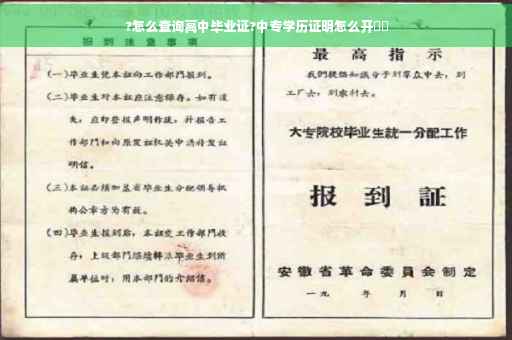 ?怎么查询高中毕业证?中专学历证明怎么开
报到注意事项
(一)毕业生凭本证向工作部门报到。
(二)毕业生对本证应注意保存。如有遗
失,应即登报声明作废,并报告工
作部门和向原发证机关申请补发证
明信。
(三)本证必须加盖省毕业生分配领导机
构公章方为有效。
(四)毕业生报到后,本证交工作部门收
存;上级部门继续转派毕业生到所
属单位时,用本部门的介绍信。
最高指示
我们提倡知识分子到群众中去,到
工厂去,到农村去。
大专院校毕业生统一分配工作
报到证
安徽省革命委员会制定
一九 年 月 日